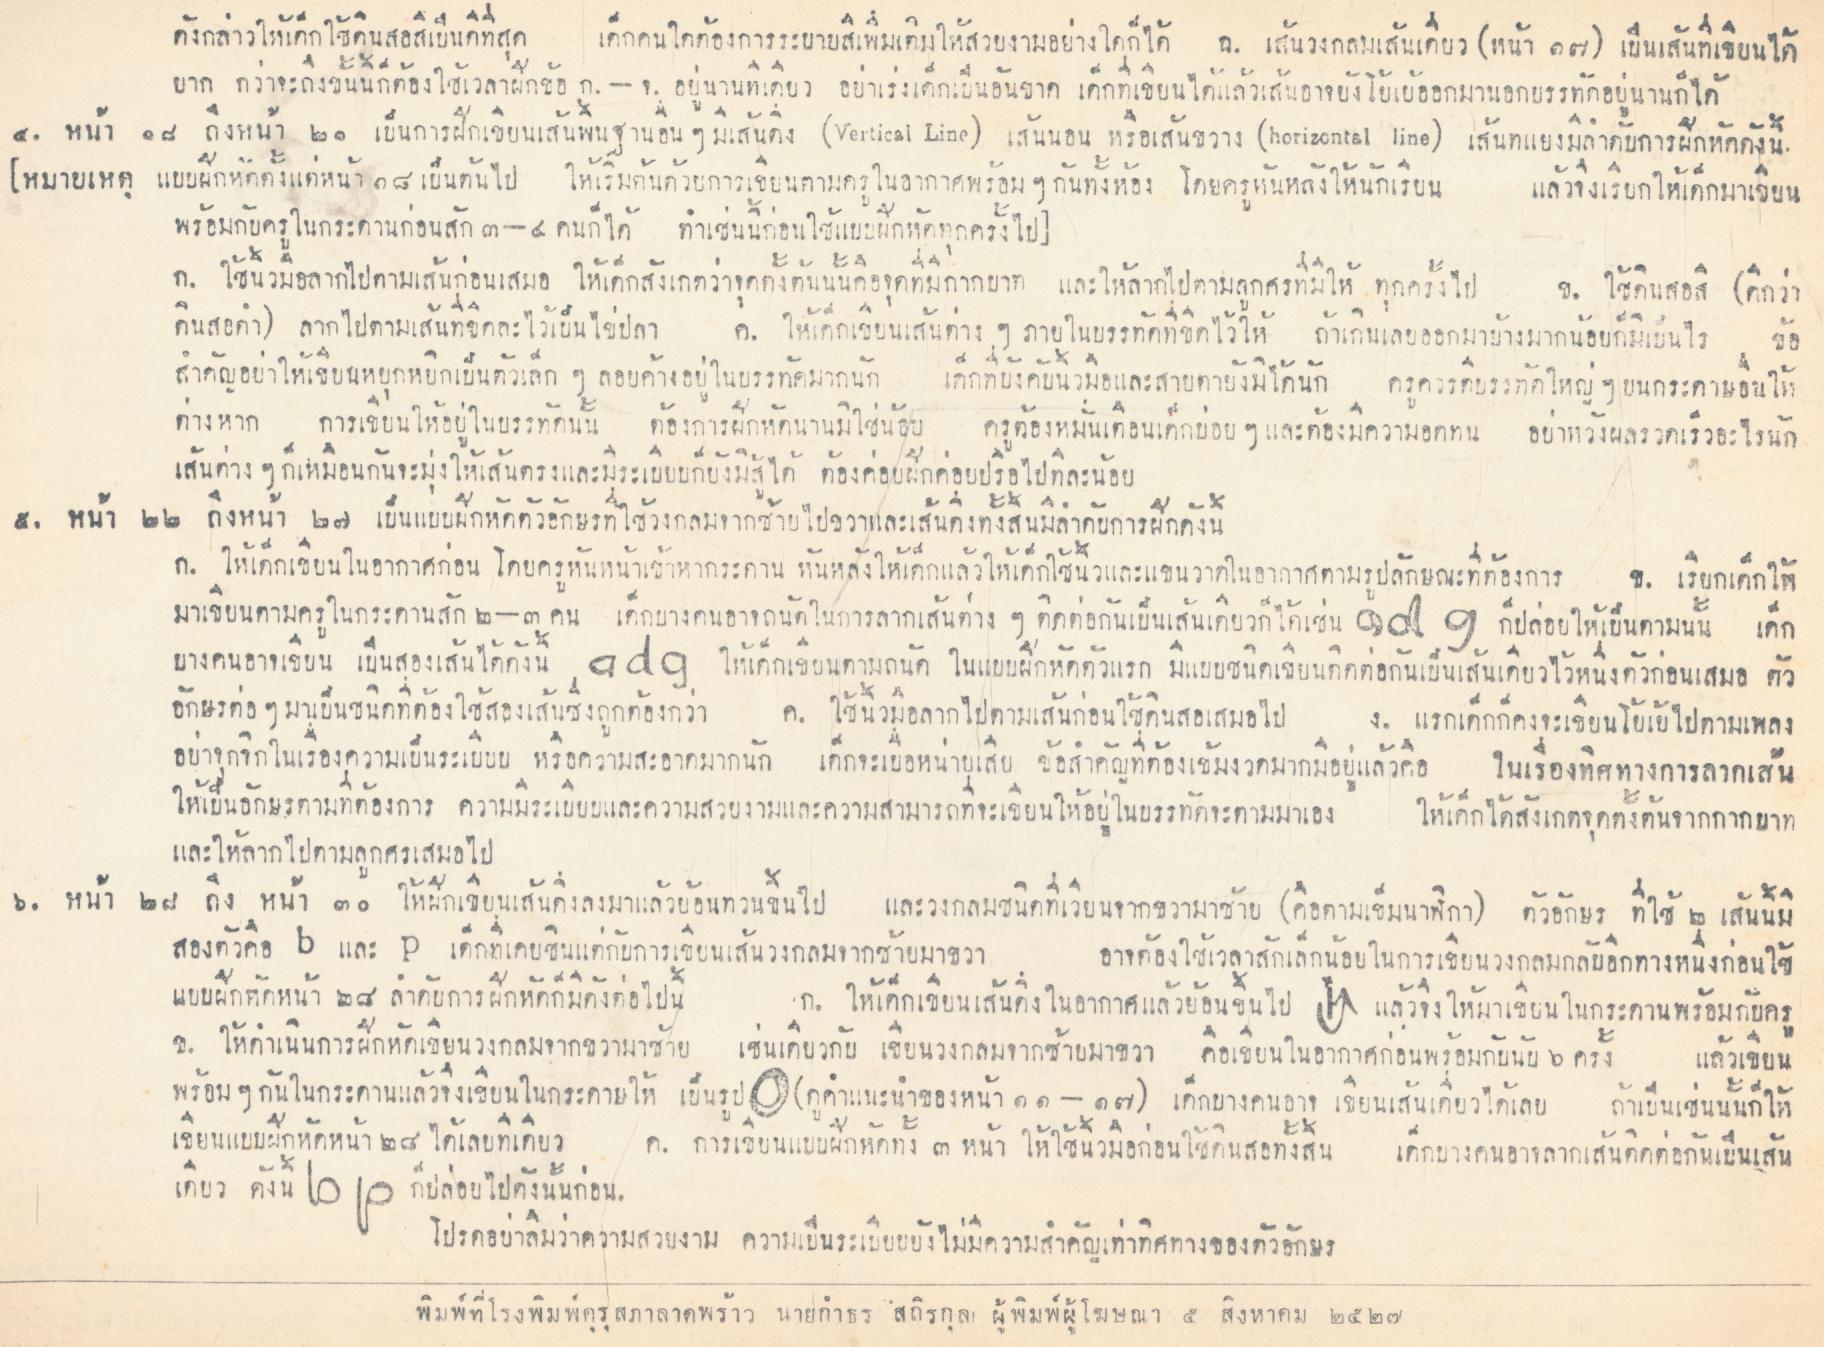 ดังกล่าวให้เด็กใช้ดินสอสีเป็นดีที่สุด เด็กคนใดต้องการระบายสีเพิ่มเติมให้สวยงามอย่างใดก็ได้ ฉ. เส้นวงกลมเส้นเดียว (หน้า ๑๗) เป็นเส้นที่เขียนได้
ยาก กว่าจะถึงขั้นนี้ก็ต้องใช้เวลาฝึกข้อ ก. – จ. อยู่นานทีเดียว อย่าเร่งเด็กเป็นอันขาด เด็กที่เขียนได้แล้วเส้นอาจยังโย้เย้ออกมานอกบรรทัดอยู่นานก็ได้
๔. หน้า ๑๘ ถึงหน้า ๒๑ เป็นการฝึกเขียนเส้นพื้นฐานอื่น ๆ มีเส้นดิ่ง (Vertical Line) เส้นนอน หรือเส้นขวาง (horizontal line) เส้นทแยงมีลำดับการฝึกหัดดังนี้.
[หมายเหตุ แบบฝึกหัดตั้งแต่หน้า ๑๘ เป็นต้นไป ให้เริ่มต้นด้วยการเขียนตามครูในอากาศพร้อม ๆ กันทั้งห้อง โดยครูหันหลังให้นักเรียน แล้วจึงเรียกให้เด็กมาเขียน
พร้อมกับครูในกระดานก่อนสัก ๓ – ๔ คนก็ได้ ทำเช่นนี้ก่อนใช้แบบฝึกหัดทุกครั้งไป]
ก. ใช้นิ้วมือลากไปตามเส้นก่อนเสมอ ให้เด็กสังเกตว่าจุดตั้งต้นนั้นคือจุดที่มีกากบาท และให้ลากไปตามลูกศรที่มีให้ ทุกครั้งไป ข. ใช้ดินสอสี (ดีกว่า
ดินสอดำ) ลากไปตามเส้นที่ขีดละไว้เป็นไข่ปลา ค. ให้เด็กเขียนเส้นต่าง ๆ ภายในบรรทัดที่ขีดไว้ให้ ถ้าเกินเลยออกมาบ้างมากน้อยก็มิเป็นไร ข้อ
สำคัญอย่าให้เขียนหยุกหยิกเป็นตัวเล็ก ๆ ลอยค้างอยู่ในบรรทัดมากนัก เด็กที่บังคับนิ้วมือและสายตายังมิได้นัก ครูควรตีบรรทัดใหญ่ ๆ บนกระดาษอื่นให้
ต่างหาก การเขียนให้อยู่ในบรรทัดนั้น ต้องการฝึกหัดนานมิใช่น้อย ครูต้องหมั่นเตือนเด็กบ่อย ๆ และต้องมีความอดทน อย่าหวังผลรวดเร็วอะไรนัก
เส้นต่าง ๆ ก็เหมือนกันจะมุ่งให้เส้นตรงและมีระเบียบก็ยังมิสู้ได้ ต้องค่อยฝึกค่อยปรือไปทีละน้อย
๕. หน้า ๒๒ ถึงหน้า ๒๗ เป็นแบบฝึกหัดตัวอักษรที่ใช้วงกลมจากซ้ายไปขวาและเส้นดิ่งทั้งสิ้นมีลำดับการฝึกดังนี้
ก. ให้เด็กเขียนในอากาศก่อน โดยครูหันหน้าเข้าหากระดาน หันหลังให้เด็กแล้วให้เด็กใช้นิ้วและแขนวาดในอากาศตามรูปลักษณะที่ต้องการ ข. เรียกเด็กให้
มาเขียนตามครูในกระดานสัก ๒–๓ คน เด็กบางคนอาจถนัดในการลากเส้นต่าง ๆ ติดต่อกันเป็นเส้นเดียวก็ได้เช่น a d g ก็ปล่อยให้เป็นตามนั้น เด็ก
บางคนอาจเขียน เป็นสองเส้นได้ดังนี้ a d g ให้เด็กเขียนตามถนัด ในแบบฝึกหัดตัวแรก มีแบบชนิดเขียนติดต่อกันเป็นเส้นเดียวไว้หนึ่งตัวก่อนเสมอ ตัว
อักษรต่อ ๆ มาเป็นชนิดที่ต้องใช้สองเส้นซึ่งถูกต้องกว่า ค. ใช้นิ้วมือลากไปตามเส้นก่อนใช้ดินสอเสมอไป ง. แรกเด็กก็คงจะเขียนโย้เย้ไปตามเพลง
อย่าจุกจิกในเรื่องความเป็นระเบียบ หรือความสะอาดมากนัก เด็กจะเบื่อหน่ายเสีย ข้อสำคัญที่ต้องเข้มงวดมากมีอยู่แล้วคือ ในเรื่องทิศทางการลากเส้น
ให้เป็นอักษรตามที่ต้องการ ความมีระเบียบและความสวยงามและความสามารถที่จะเขียนให้อยู่ในบรรทัดจะตามมาเอง ให้เด็กได้สังเกตจุดตั้งต้นจากกากบาท
และให้ลากไปตามลูกศรเสมอไป
๖. หน้า ๒๘ ถึง หน้า ๓๐ ให้ฝึกเขียนเส้นดิ่งลงมาแล้วย้อนทวนขึ้นไป และวงกลมชนิดที่เวียนจากขวามาซ้าย (คือตามเข็มนาฬิกา) ตัวอักษร ที่ใช้ ๒ เส้นนี้มี
สองตัวคือ b และ p เด็กที่เคยชินแต่กับการเขียนเส้นวงกลมจากซ้ายมาขวา อาจต้องใช้เวลาสักเล็กน้อยในการเขียนวงกลมกลับอีกทางหนึ่งก่อนใช้
แบบฝึกหัดหน้า ๒๘ ลำดับการฝึกหัดก็มีดังต่อไปนี้ ก. ให้เด็กเขียนเส้นดิ่งในอากาศแล้วย้อนขึ้นไป แล้วจึงให้มาเขียนในกระดานพร้อมกับครู
ข. ให้ดำเนินการฝึกหัดเขียนวงกลมจากขวามาซ้าย เช่นเดียวกับ เขียนวงกลมจากซ้ายมาขวา คือเขียนในอากาศก่อนพร้อมกับนับ ๖ ครั้ง แล้วเขียน
พร้อม ๆ กันในกระดานแล้วจึงเขียนในกระดาษให้ เป็นรูป O (ดูคำแนะนำของหน้า ๑๑ – ๑๗) เด็กบางคนอาจ เขียนเส้นเดียวได้เลย ถ้าเป็นเช่นนั้นก็ให้
เขียนแบบฝึกหัดหน้า ๒๘ ได้เลยทีเดียว ค. การเขียนแบบฝึกหัดทั้ง ๓ หน้า ให้ใช้นิ้วมือก่อนใช้ดินสอทั้งสิ้น เด็กบางคนอาจลากเส้นติดต่อกันเป็นเส้น
เดียว ดังนี้ b p ก็ปล่อยไปดังนั้นก่อน.
โปรดอย่าลืมว่าความสวยงาม ความเป็นระเบียบยังไม่มีความสำคัญเท่าทิศทางของตัวอักษร
พิมพ์ที่โรงพิมพ์คุรุสภาลาดพร้าว นายกำธร สถิรกุล ผู้พิมพ์ผู้โฆษณา ๕ สิงหาคม ๒๕๒๗